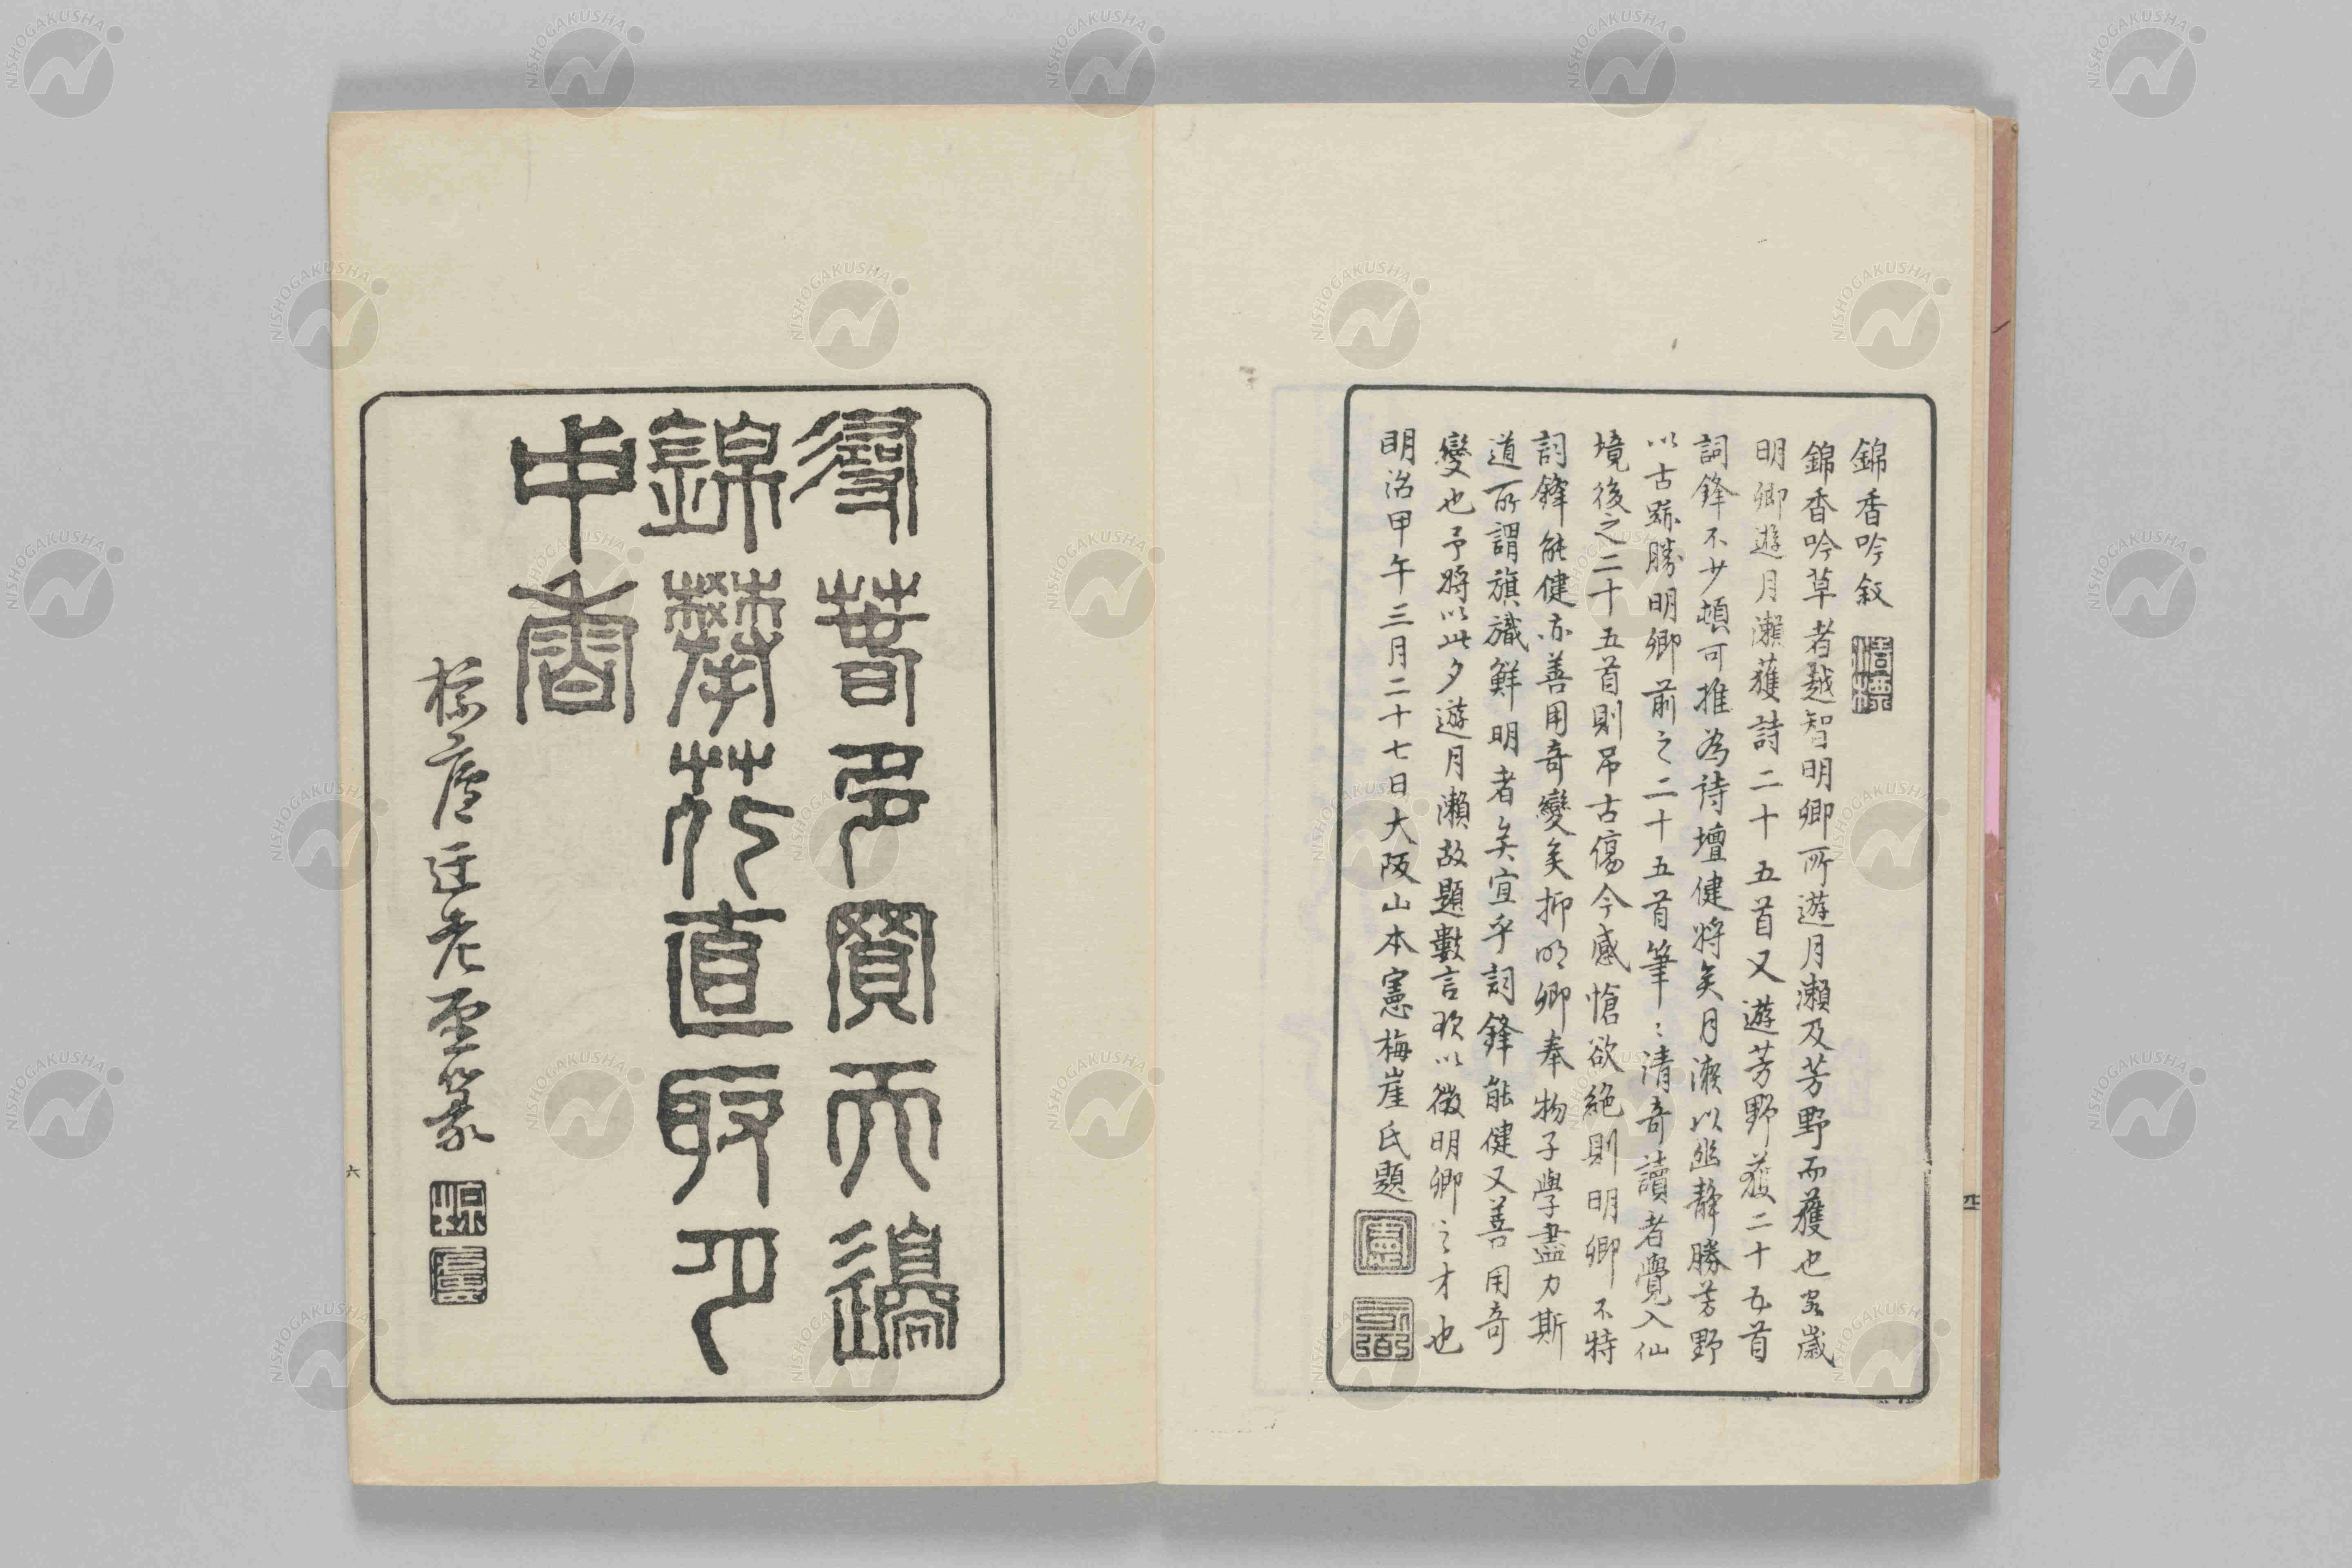 錦香吟敍
錦香吟草者越智明卿所遊月瀨及芳野而獲也客歲
明卿遊月瀨獲詩二十五首又遊芳野獲二十五首
詞鋒不少頓可推為詩壇健将矣月瀨以幽靜勝芳野
以古跡勝明卿前之二十五首筆〻清奇讀者覺入仙
境後之二十五首則吊古傷今感愴欲絕則明卿不特
詞鋒能健亦善用奇變矣抑明卿奉物子學盡力斯
道所謂旗識鮮明者矣宜乎詞鋒能健又善用奇
變也予將以此夕遊月瀨故題數言歌以徵明卿之才也
明治甲午三月二十七日大阪山本憲梅崖氏題
尋春多買天邊
錦攀花直取月
中香
老 篆
六
NISHOGAKUSHA